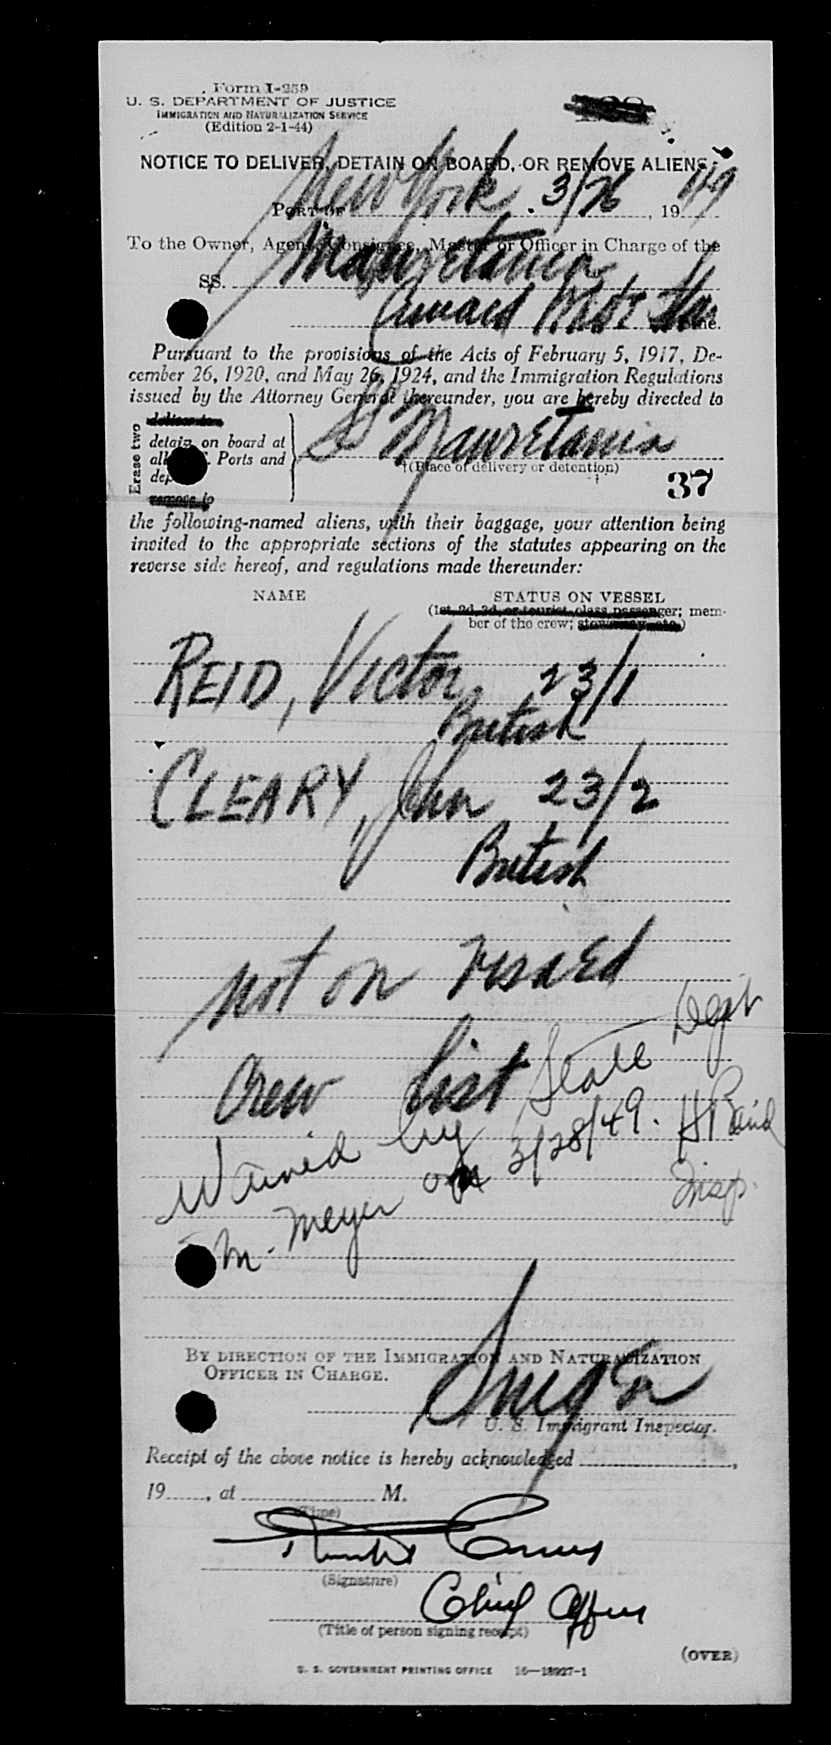 Form I-259
U. S. DEPARTMENT OF JUSTICE
IMMIGRATION AND NATURALIZATION SERVICE
(Edition 2-1-44)
NOTICE TO DELIVER, DETAIN ON BOARD, OR REMOVE ALIENS
PORT OF New York . 3/26, 1949
To the Owner, Agent, Consignee, Master or Officer in Charge of the
SS. Mauretania
Cunard White Star Line.
Pursuant to the provisions of the Acts of February 5, 1917, De-
cember 26, 1920, and May 26, 1924, and the Immigration Regulations
issued by the Attorney General thereunder, you are hereby directed to
Erase two
deliver to
detain on board at
all Ports and
remove to
SS Mauretania
(Place of delivery or detention)
37
the following-named aliens, with their baggage, your attention being
invited to the appropriate sections of the statutes appearing on the
reverse side hereof, and regulations made thereunder:
NAME STATUS ON VESSEL
(1st, 2d, 3d, or tourist class passenger; mem-
ber of the crew; stowaway, etc.)
REID, Victor 23/1
British
CLEARY, John 23/2
British
not on visaed
crew list
Waived by State Dept
M. Meyer on 3/28/49. H Baird
Insp.
BY DIRECTION OF THE IMMIGRATION AND NATURALIZATION
OFFICER IN CHARGE.
U. S. Immigrant Inspector.
Receipt of the above notice is hereby acknowledged ,
19 , at M.
(Time)
(Signature)
Chief Officer
(Title of person signing receipt)
(OVER)
U. S. GOVERNMENT PRINTING OFFICE 16—18927-1